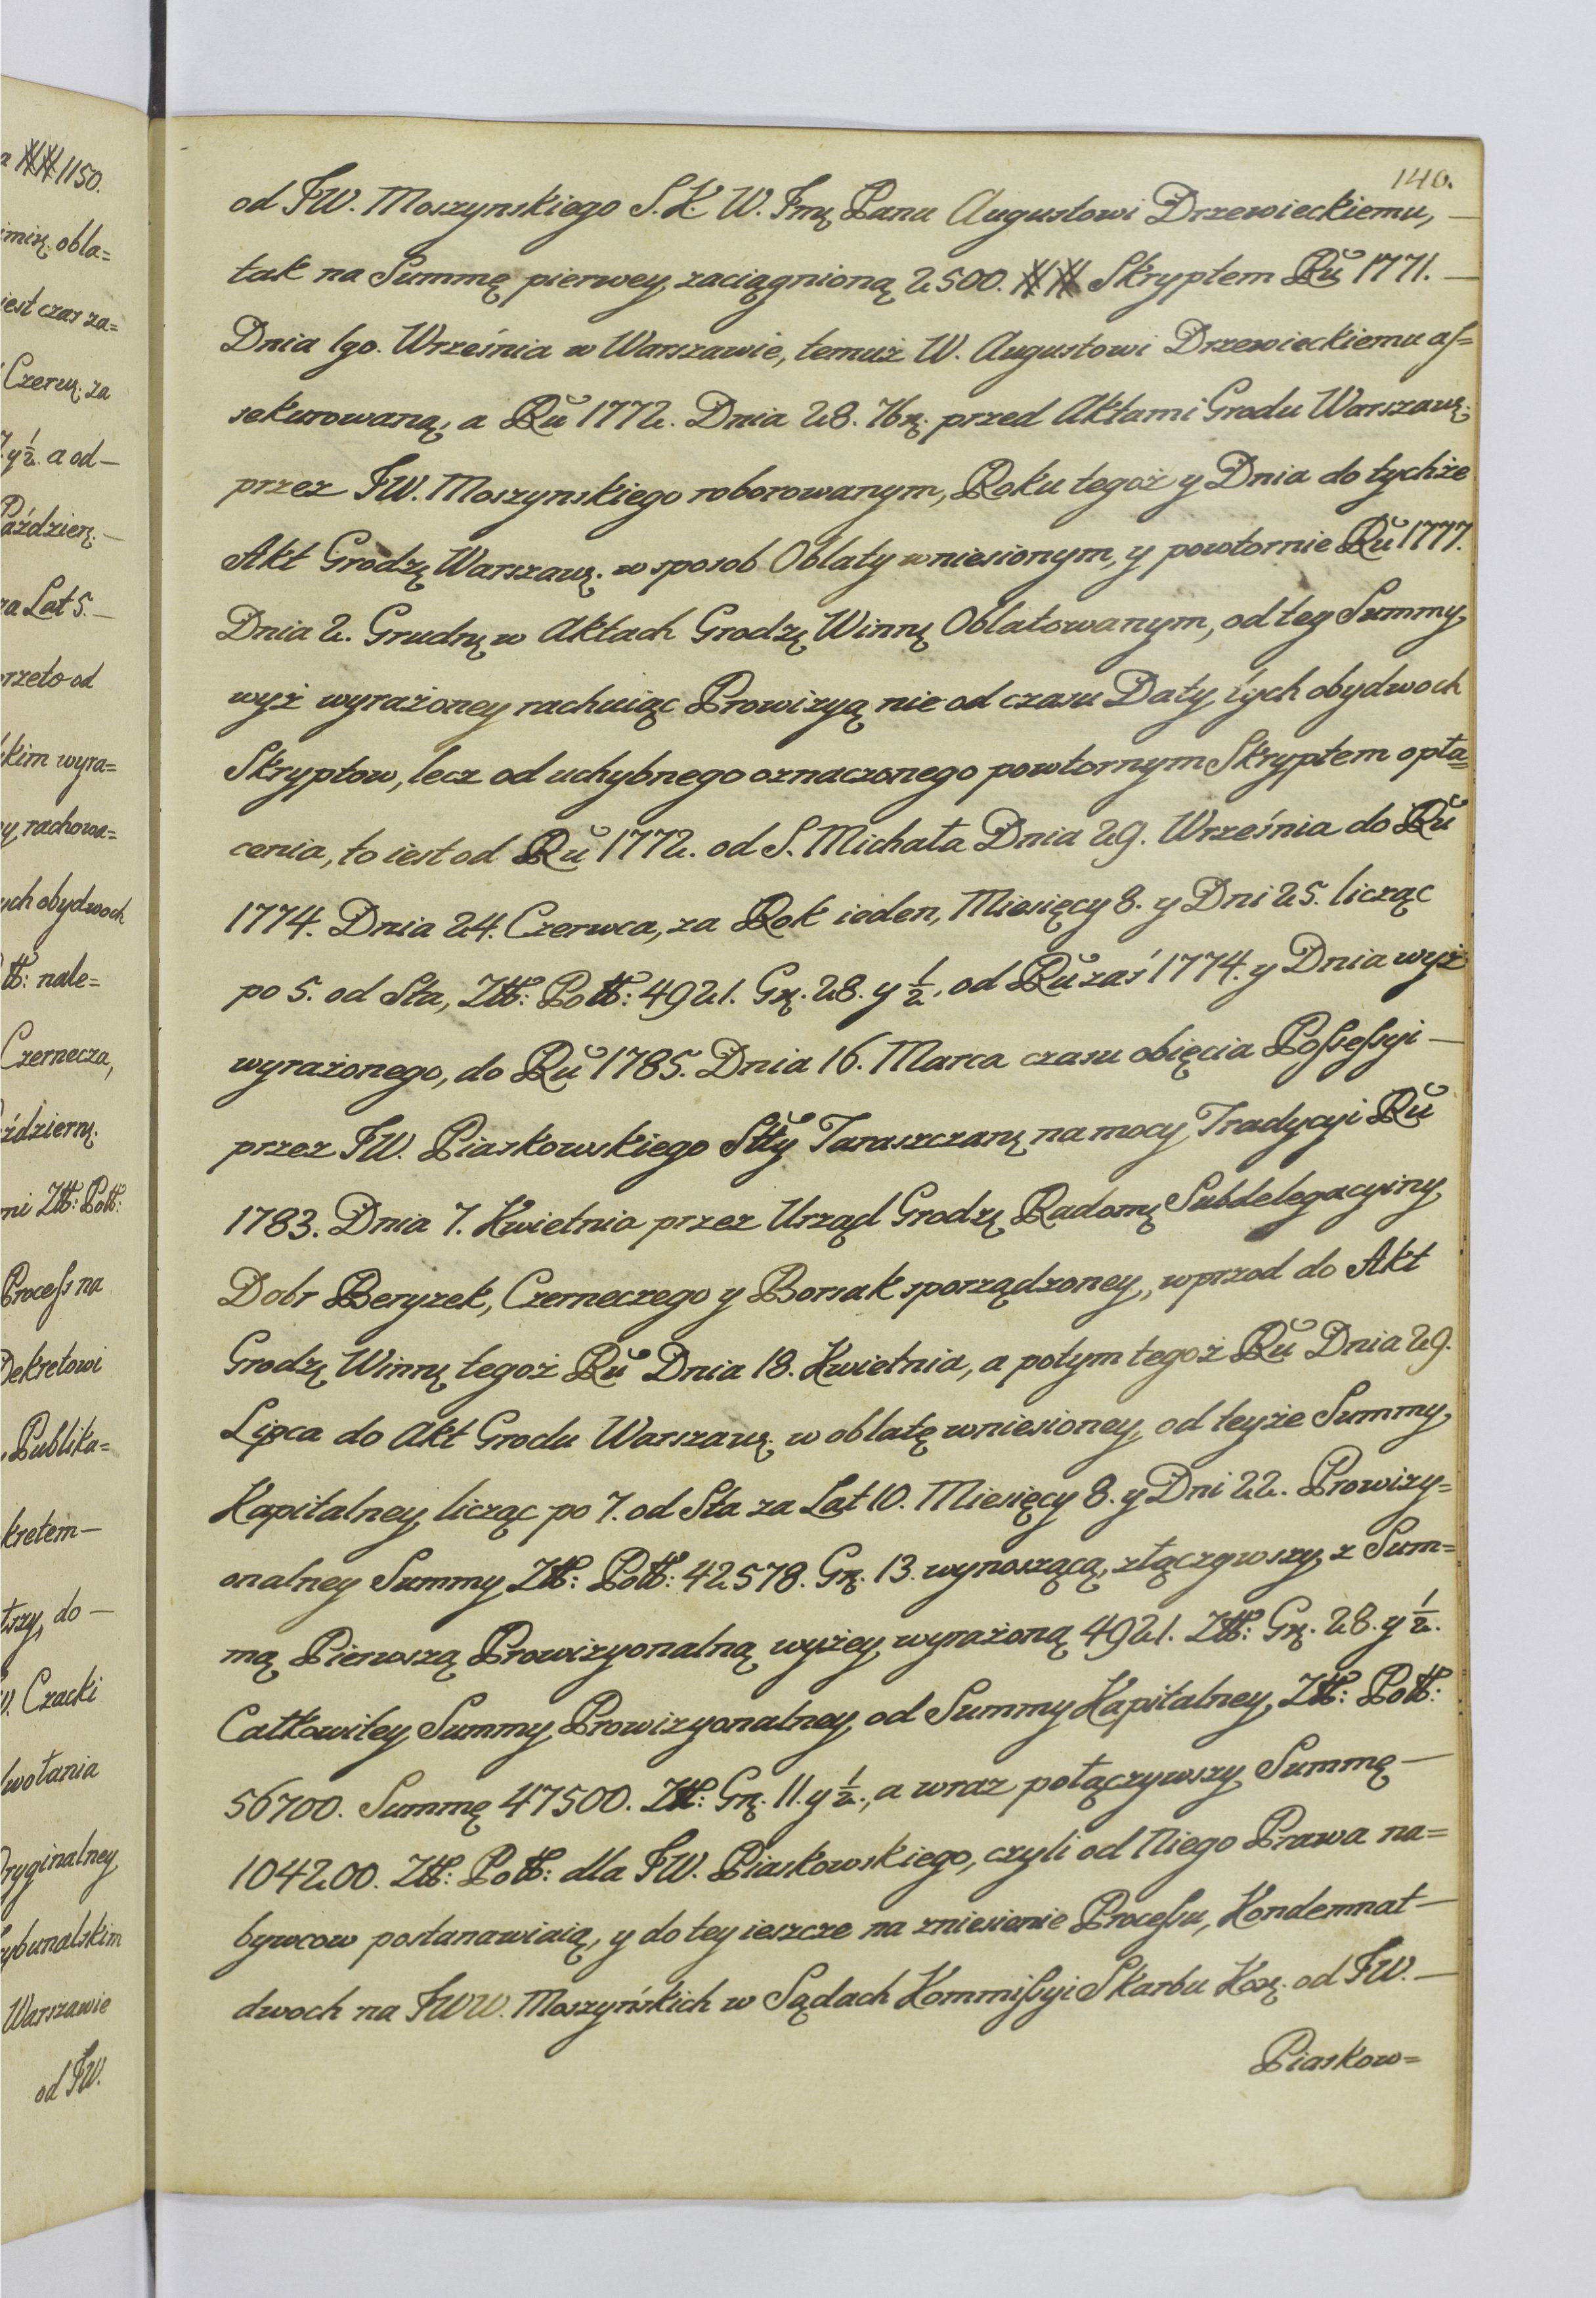 a ## 1150.
imię obla=
iest czas za=
Czerwę. za
7. y ½. a od —
Paździer. —
za Lat 5. —
przeto od
kim wyra=
y rachowa=
ych obydwoch
tt: nale=
Czernecza,
ździerng.
ni Ztt: Pott:
Process na
Dekretowi
Publika=
kretem —
trzy, do —
W. Czacki
wołania
Oryginalney
rybunalskim
Warszawie
od JW.
140.
od JW. Moszynskiego S. K. W. Jmę Panu Augustowi Drzewieckiemu, —
tak na Summę pierwey zaciągnioną 2500. ## Skryptem Rŭ 1771. —
Dnia 1go. Września w Warszawie, temuż W. Augustowi Drzewieckiemu as=
sekurowaną, a Rŭ 1772. Dnia 28. 7brę. przed Aktami Grodu Warszawę.
przez JW. Moszynskiego roborowanym, Roku tegoż y Dnia do tychże
Akt Grodzę Warszawę. w sposob Oblaty wniesionym, y powtornie Rŭ 1777.
Dnia 2. Grudnę w Aktach Grodzę Winnę Oblatowanym, od tey Summy
wyż wyrażoney rachuiąc Prowizyą nie od czasu Daty tych obydwoch
Skryptow, lecz od uchybnego oznaczonego powtornym Skryptem opła=
cenia, to iest od Rŭ 1772. od S. Michała Dnia 29. Września do Rŭ
1774. Dnia 24. Czerwca, za Rok ieden, Miesięcy 8. y Dni 25. licząc
po 5. od Sta, Ztt: Pott: 4921. Grę. 28. y ½, od Rŭ zaś 1774. y Dnia wyż
wyrażonego, do Rŭ 1785. Dnia 16. Marca czasu obięcia Possessyi —
przez JW. Piaskowskiego Stty Taraszczanę na mocy Tradycyi Rŭ
1783. Dnia 7. Kwietnia przez Urząd Grodzę Radomę Subdelegacyiny
Dobr Beryzek, Czerneczego y Borsak sporządzoney, wprzod do Akt
Grodzę Winnę tegoż Rŭ Dnia 18. Kwietnia, a potym tegoż Rŭ Dnia 29.
Lipca do Akt Grodu Warszawę. w oblatę wniesioney, od teyże Summy
Kapitalney licząc po 7. od Sta za Lat 10. Miesięcy 8. y Dni 22. Prowizy=
onalney Summy Ztt: Pott: 42578. Grę. 13. wynoszącą, złączywszy z Sum=
mą Pierwszą Prowizyonalną wyżey wyrażoną 4921. Ztt: Grę. 28. y ½.
Całkowitey Summy Prowizyonalney od Summy Kapitalney Ztt: Pott:
56700. Summę 47500. Ztt: Grę. 11. y ½., a wraz połączywszy Summę —
104200. Ztt: Pott: dla JW. Piaskowskiego, czyli od Niego Prawa na=
bywcow postanawiaią, y do tey ieszcze na zniesienie Processu, Kondemnat —
dwoch na JWW. Moszyńskich w Sądach Kommissyi Skarbu Korę. od JW. —
Piaskow=